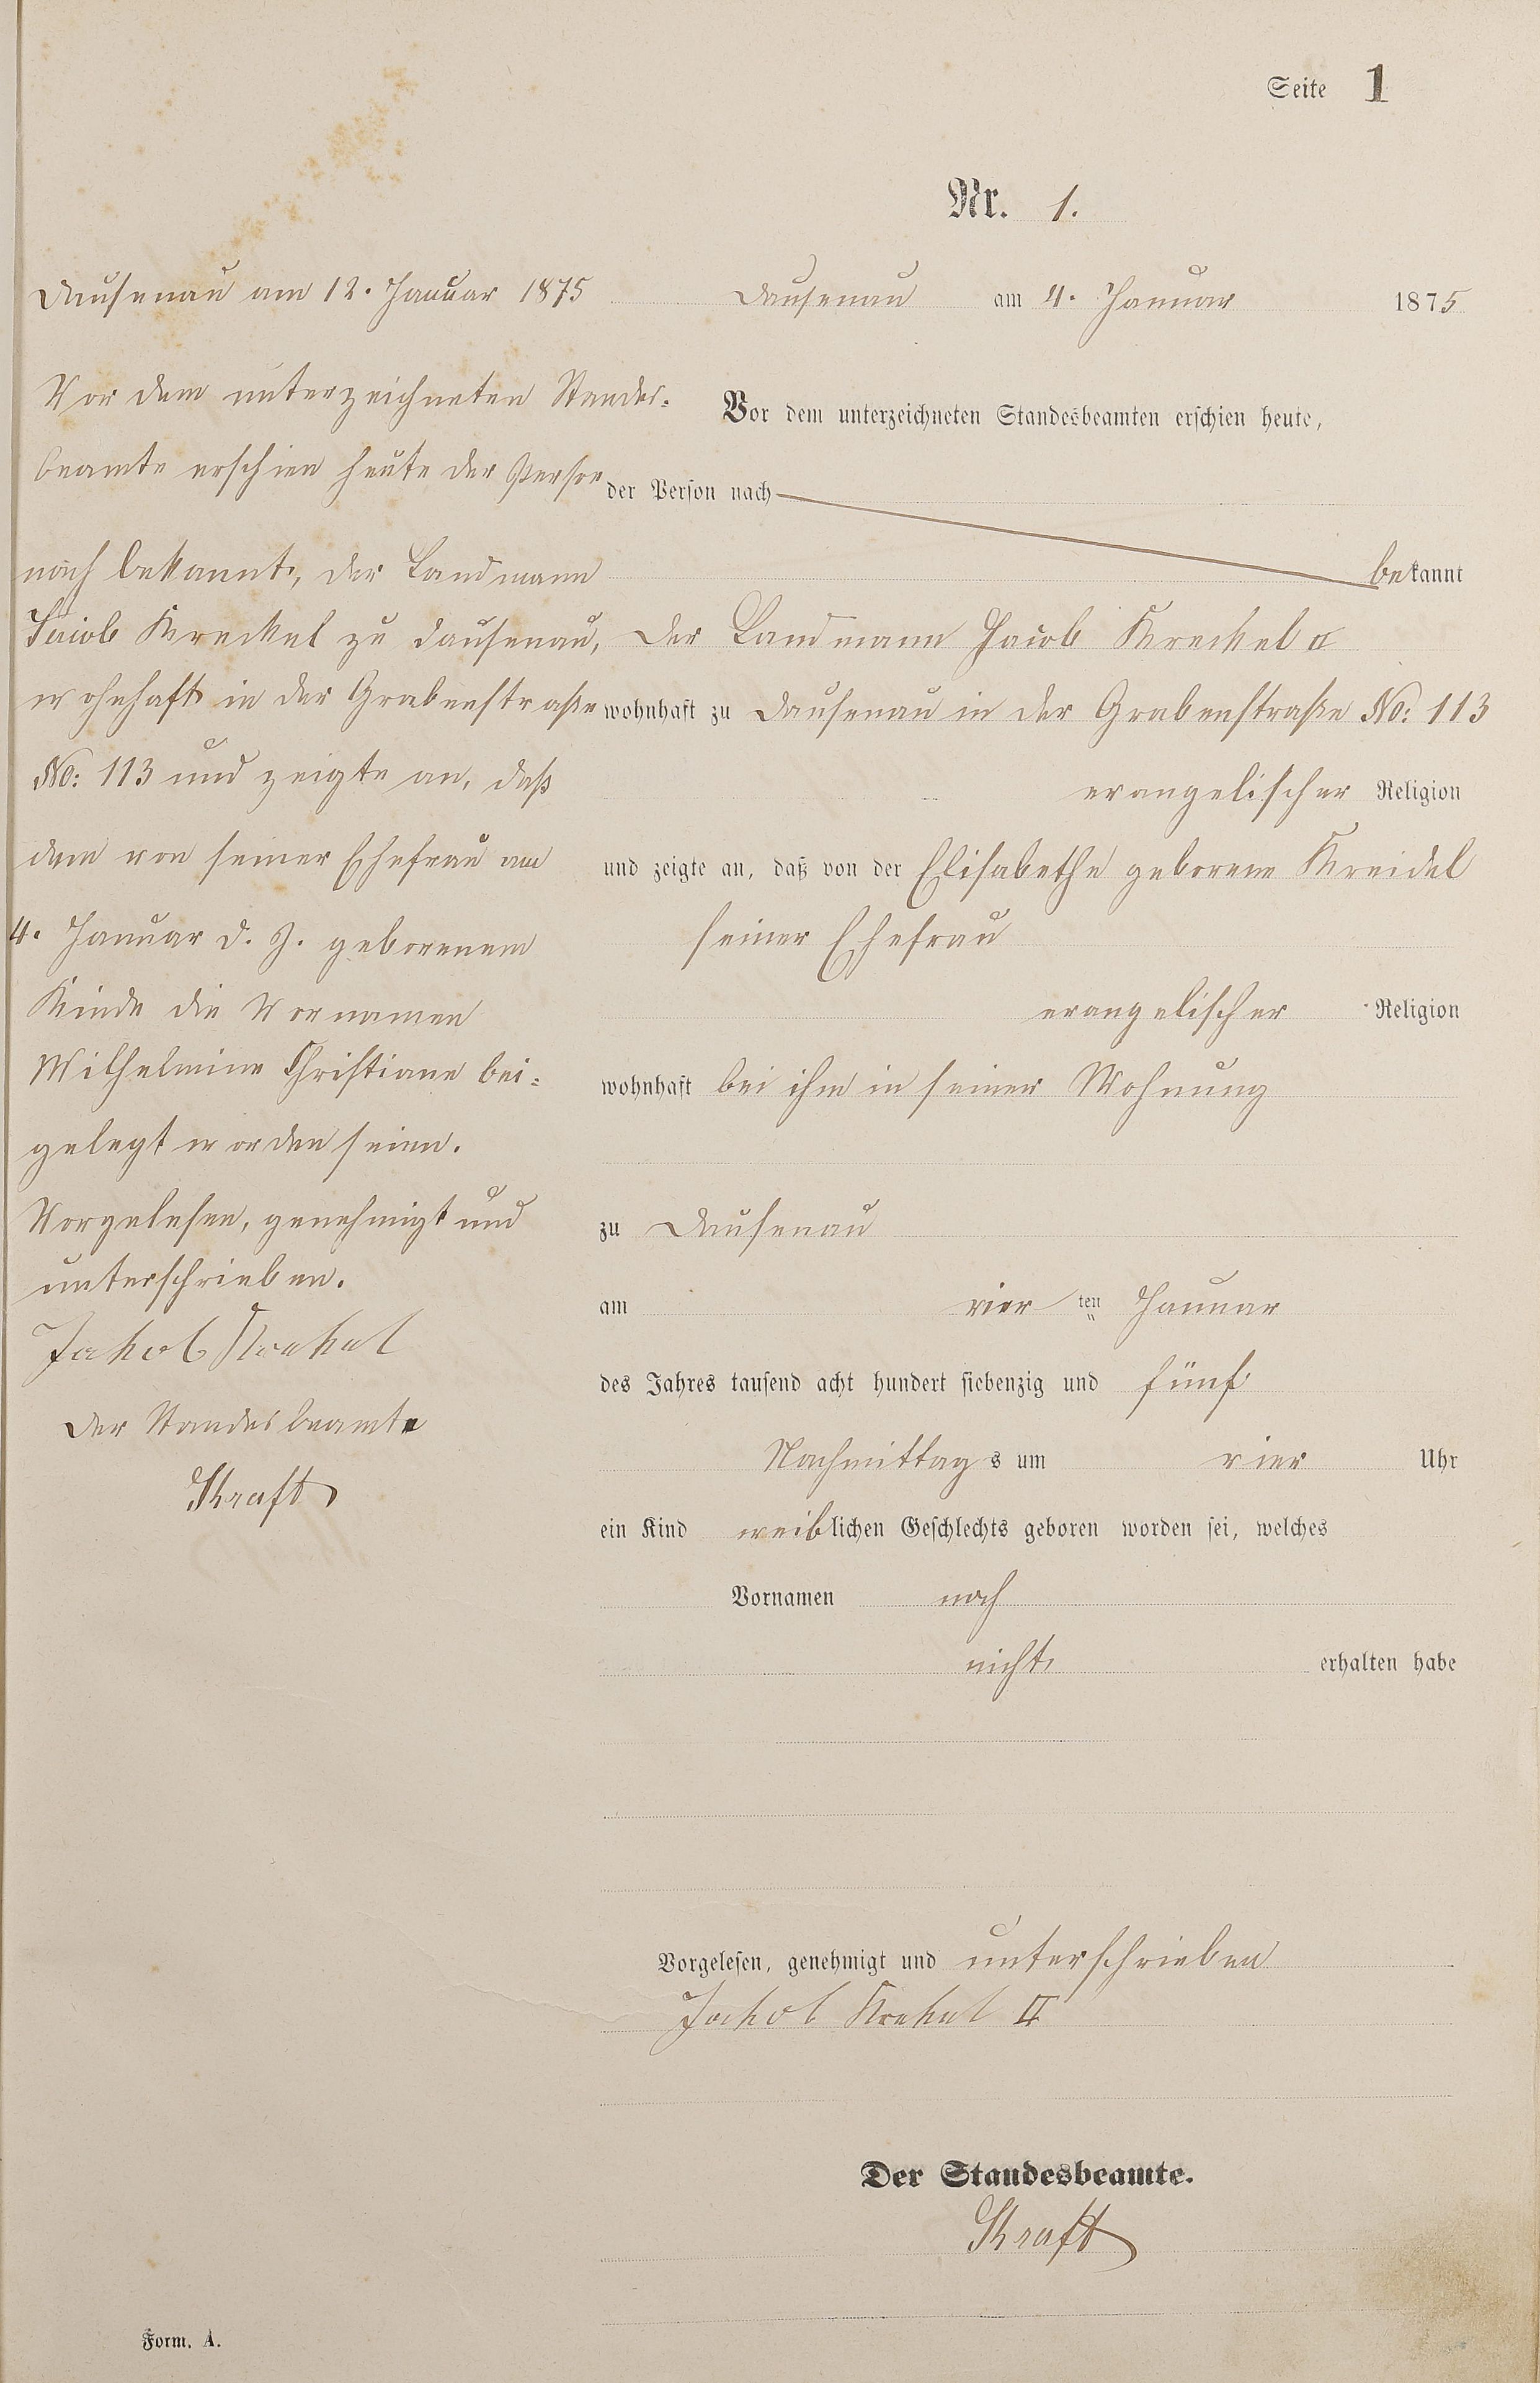 Seite 1
Nr. 1.
Dausenau am 4. Januar 1875
Vor dem unterzeichneten Standesbeamten erschien heute,
der Person nach
bekannt
der Landmann Jacob Kreckel II
wohnhaft zu Dausenau in der Grabenstraße No: 113
evangelischer Religion
und zeigte an, daß von der Elisabethe geborene Kreidel
seiner Ehefrau
evangelischer Religion
wohnhaft bei ihm in seiner Wohnung
zu Dausenau
am vier ten Januar
des Jahres tausend acht hundert siebenzig und fünf
Nachmittags um vier Uhr
ein Kind weiblichen Geschlechts geboren worden sei, welches
Vornamen noch
nicht erhalten habe
Vorgelesen, genehmigt und unterschrieben
Jakob Krekel II
Der Standesbeamte.
Kraft
Dausenau am 12. Januar 1875
Vor dem unterzeichneten Standes-
beamte erschien heute der Person
nach bekannt, der Landmann
Jacob Kreckel zu Dausenau,
wohnhaft in der Grabenstraße
No: 113 und zeigte an, daß
dem von seiner Ehefrau am
4. Januar d. J. geborenem
Kinde die Vornamen
Wilhelmine Christiane bei-
gelegt worden seien.
Vorgelesen, genehmigt und
unterschrieben.
Jakob Krekel
Der Standesbeamte
Kraft
Form. A.